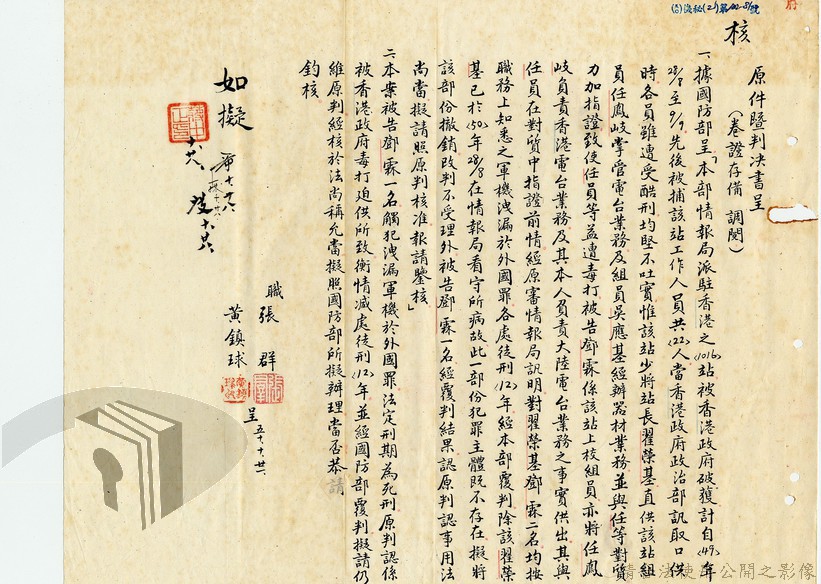 核
原件暨判決書呈
(卷證存備 調閱)
一、據國防部呈「本部情報局派駐香港之(1016)站被香港政府破獲計自(49)年
28/8至9/9先後被捕該站工作人員共(22)人當香港政府政治部訊取口供
時各員雖遭受酷刑均堅不吐實惟該站少將站長翟榮基直供該站組
員任鳳岐掌管電台業務及組員吳應基經辦器材業務並與任等對質
力加指證致使任員等益遭毒打被告鄧霖係該站上校組員亦將任鳳
岐負責香港電台業務及其本人負責大陸電台業務之事實供出其與
任員在對質中指證前情經原審情報局訊明對翟榮基鄧霖二名均按
職務上知悉之軍機洩漏於外國罪各處徒刑(12)年經本部覆判除該翟榮
基已於(50)年28/8在情報局看守所病故此一部份犯罪主體既不存在擬將
該部份撤銷改判不受理外被告鄧霖一名經覆判結果認原判認事用法
尚當擬請照原判核准報請鑒核」
二、本案被告鄧霖一名觸犯洩漏軍機於外國罪法定刑期為死刑原判認係
被香港政府毒打迫供所致衡情減處徒刑(12)年並經國防部覆判擬請仍
維原判經核於法尚稱允當擬照國防部所擬辦理當否恭請
鈞核
職張 群
黃鎮球
呈 五十、十、廿
如擬